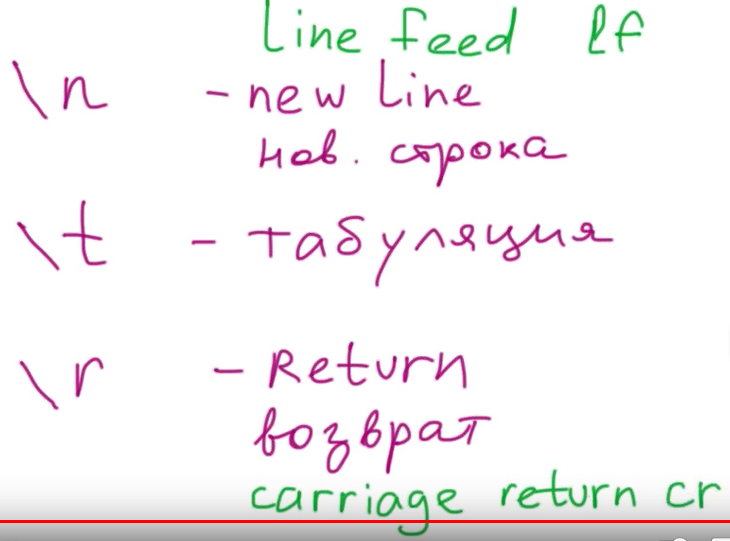 line feed lf
\n - new line
нов. строка
\t - табуляция
\r - Return
возврат
carriage return cr